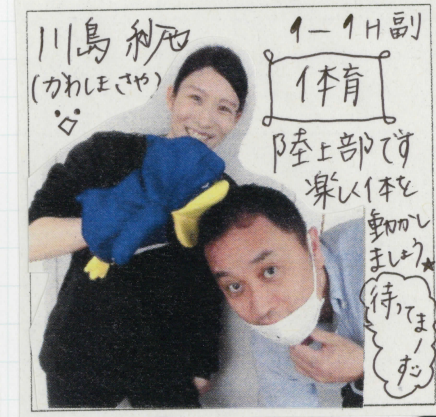 川島 紗也
(かわしまさや)
1-1H副
体育
陸上部です
楽しく体を
動かし
ましょう★
待ってま
ーす